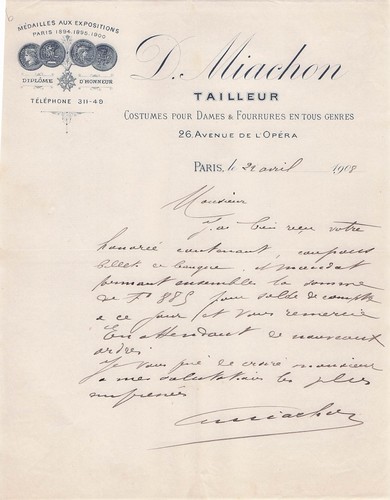 MÉDAILLES AUX EXPOSITIONS
PARIS 1894, 1895, 1900
DIPLÔME D'HONNEUR
TÉLÉPHONE 311-49
D. Miachon
TAILLEUR
COSTUMES POUR DAMES & FOURRURES EN TOUS GENRES
26, AVENUE DE L'OPÉRA
PARIS, le 22 avril 1908
Monsieur
J'ai bien reçu votre
honorée contenant coupons
billet de banque et mandat
formant ensembles la somme
de F. 885 pour solde de compte
a ce jour et vous remercie
En attendant de nouveaux
ordres
Je vous prie de croire monsieur
a mes salutations les plus
empressées
Miachon